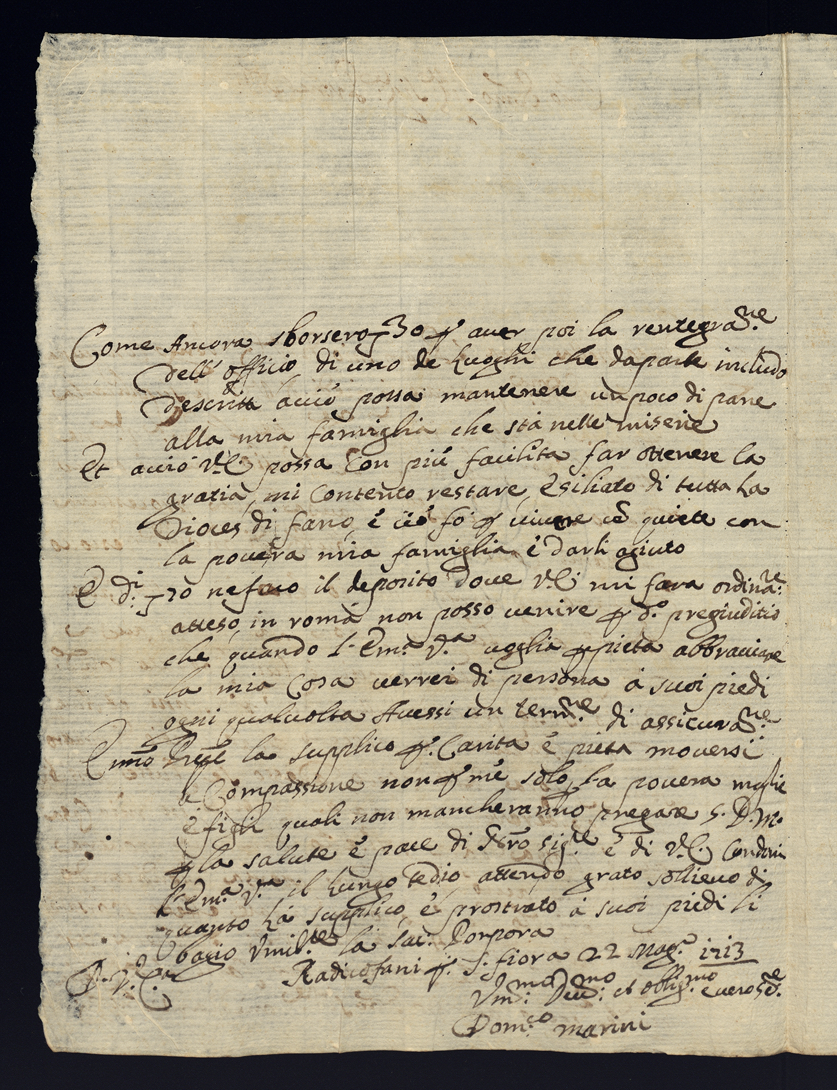 Come Ancora sborserò 30 p aver poi la rentegra.ne
dell'officio di uno de Luoghi che daparte includo
descritti acciò possa mantenere un poco di pane
alla mia famiglia che stà nelle miserie
Et acciò V.E. possa Con più facilità far ottenere la
gratia, mi Contento restare Esiliato di tutta La
Diocesi di fano, è ciò fò p vivere cō quiete con
la povera mia famiglia è darli agiuto
E di 70 nefaro il deposito dove V.E. mi farà ordina.re
atteso in romà non posso venire p d.o pregiuditio
che quando l'Em.a V.ra voglia p pietà abbraciare
la mia Cosa verrei di persona à suoi piedi
ogni qualvolta Avessi un term.ne di assicura.ne
Em̄o Prn̄pe la supplico p Carità è pietà moversi
a Compassione non p mè solo, La povera moglie
è figli quali non mancheranno pregare S. D. M.
p la salute è pace di Nr̄o Sig.re è di V.E. Condoni
l'Em.a V.ra il lungo tedio attendo grato sollievo di
quanto La supplico, è prostrato à suoi piedi li
bacio Vmil.te la Sac. Porpora
D. V. E. Radicofani p S. fiora 22 Mag.o 1713
Vm.mo Dev.mo et obblig.mo e vero Se.
Dom.co marini